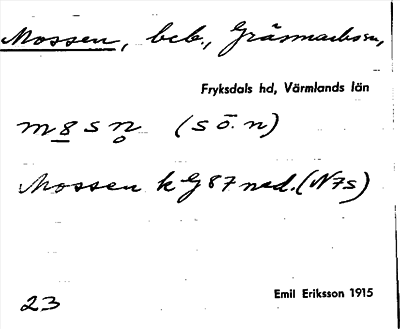 Mossen, beb., Gräsmarks sn,
Fryksdals hd, Värmlands län
m8sn (s ö. n)
Mossen k G 87 ned. (N7s)
23
Emil Eriksson 1915